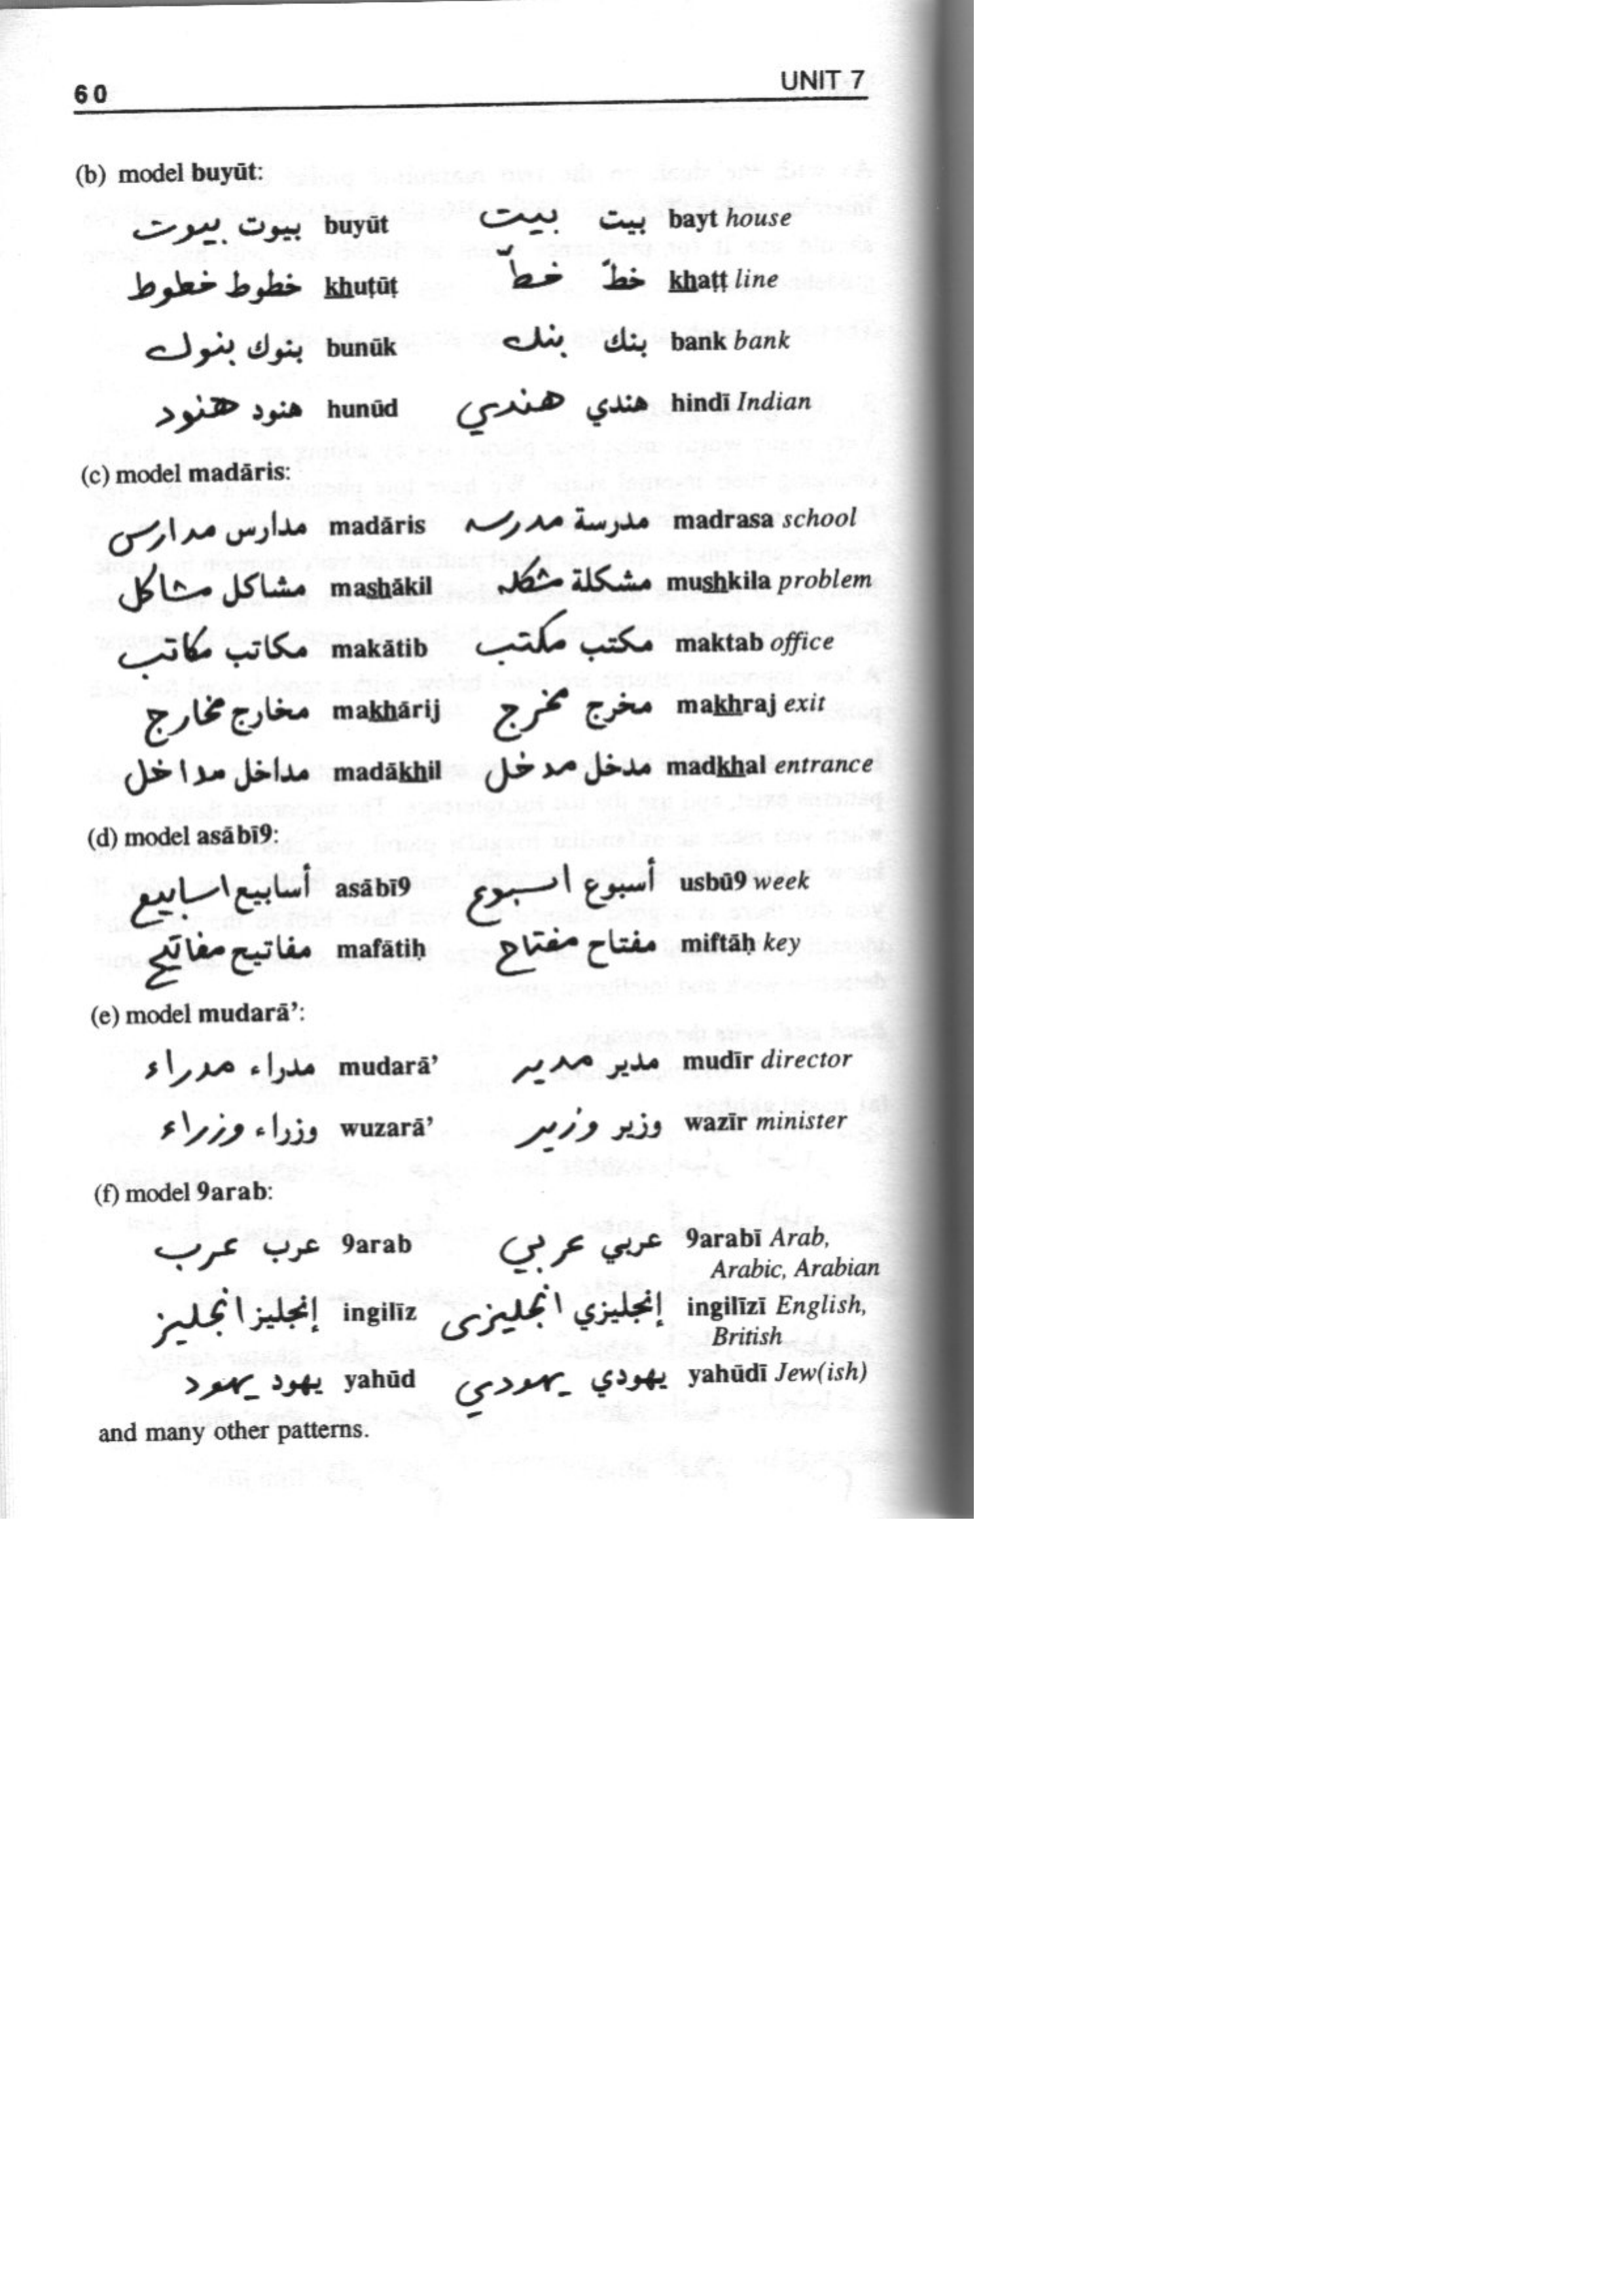 60 UNIT 7
(b) model buyūt:
بيوت بيوت buyūt بيت بيت bayt house
خطوط خطوط khuṭūṭ خطّ خطّ khaṭṭ line
بنوك بنوك bunūk بنك بنك bank bank
هنود هنود hunūd هندي هندي hindī Indian
(c) model madāris:
مدارس مدارس madāris مدرسه مدرسة madrasa school
مشاكل مشاكل mashākil مشكله مشكلة mushkila problem
مكاتب مكاتب makātib مكتب مكتب maktab office
مخارج مخارج makhārij مخرج مخرج makhraj exit
مداخل مداخل madākhil مدخل مدخل madkhal entrance
(d) model asābī9:
اسابيع أسابيع asābī9 اسبوع أسبوع usbū9 week
مفاتيح مفاتيح mafātiḥ مفتاح مفتاح miftāḥ key
(e) model mudarā’:
مدراء مدراء mudarā’ مدير مدير mudīr director
وزراء وزراء wuzarā’ وزير وزير wazīr minister
(f) model 9arab:
عرب عرب 9arab عربي عربي 9arabī Arab,
Arabic, Arabian
انجليز إنجليز ingilīz انجليزى إنجليزي ingilīzī English,
British
يهود يهود yahūd يهودي يهودي yahūdī Jew(ish)
and many other patterns.